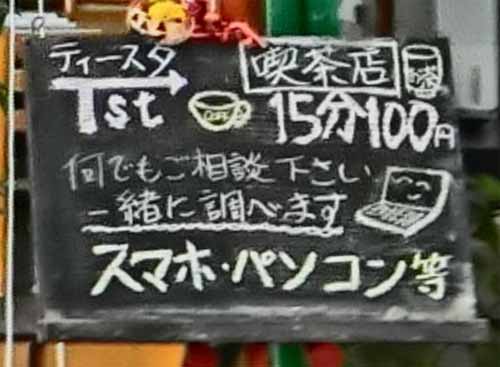 ティースタ 喫茶店
Tst 15分100円
何でもご相談下さい
一緒に調べます
スマホ・パソコン等